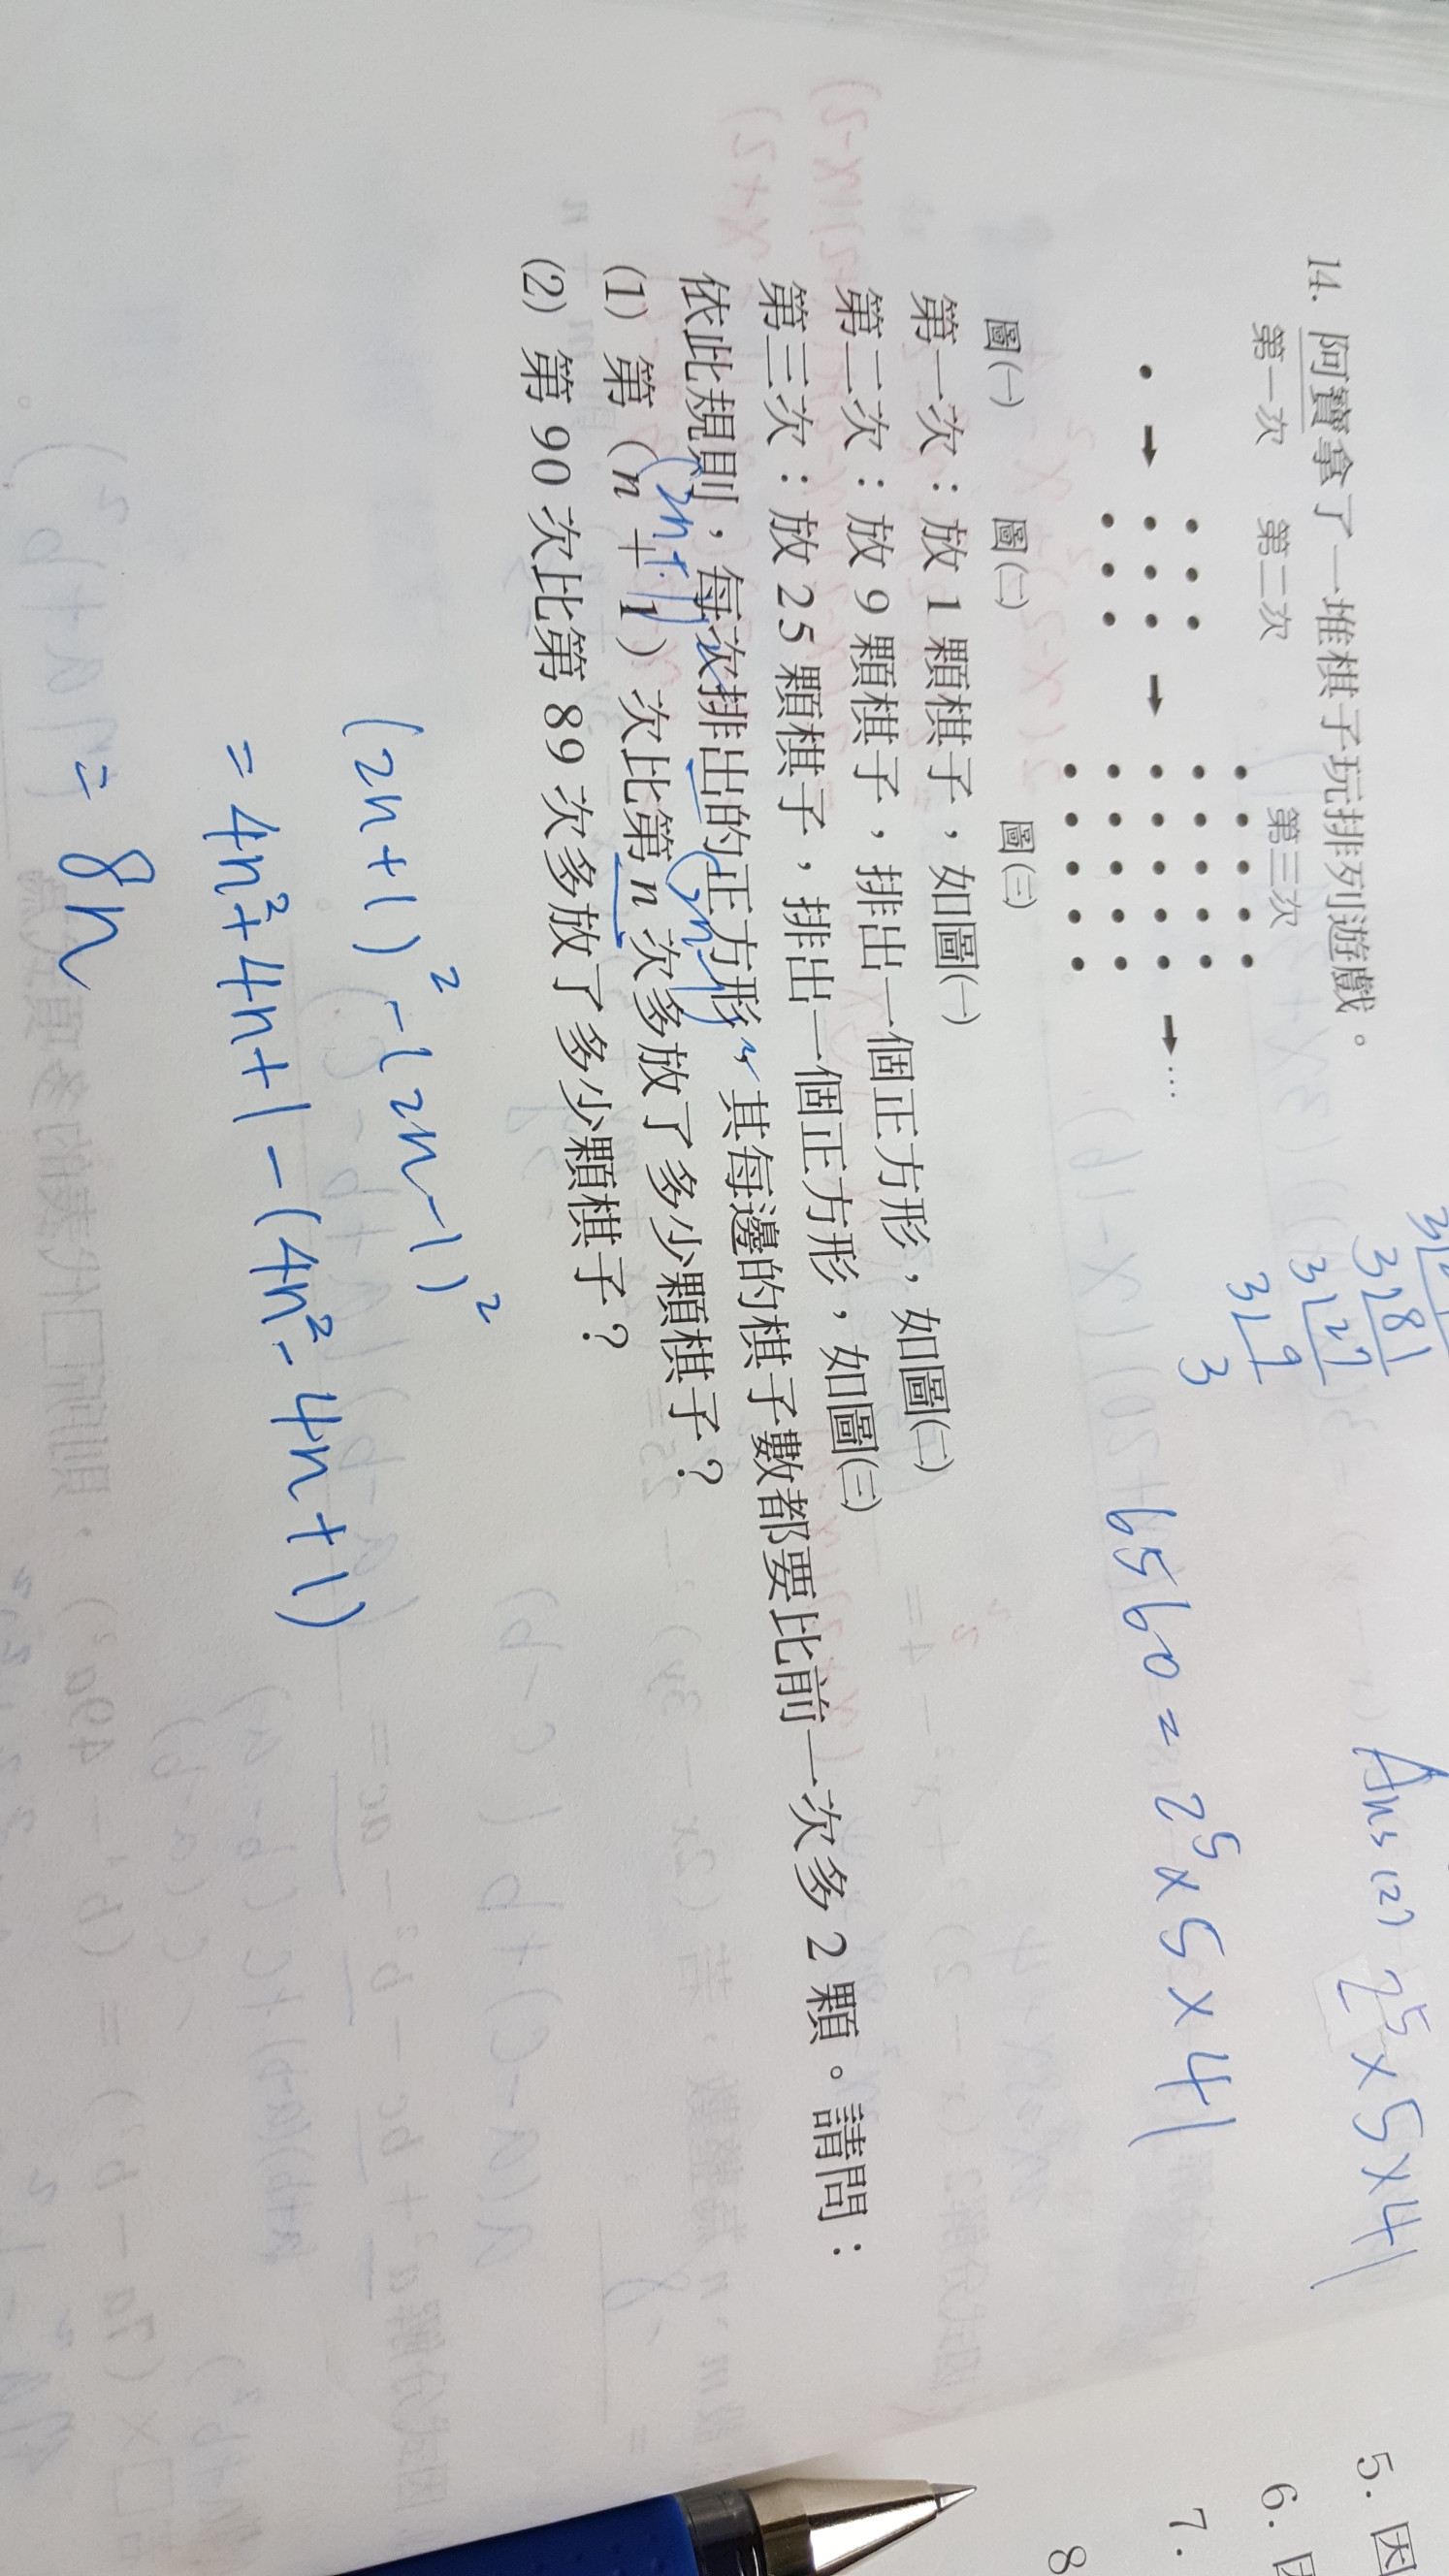 14. 阿寶拿了一堆棋子玩排列遊戲。
第一次 第二次 第三次
…
圖㈠ 圖㈡ 圖㈢
第一次：放 1 顆棋子，如圖㈠
第二次：放 9 顆棋子，排出一個正方形，如圖㈡
第三次：放 25 顆棋子，排出一個正方形，如圖㈢
依此規則，每次排出的正方形，其每邊的棋子數都要比前一次多 2 顆。請問：
(1) 第（n＋1）次比第 n 次多放了多少顆棋子？
(2) 第 90 次比第 89 次多放了多少顆棋子？
(2n+1)² -(2n-1)²
= 4n²+4n+1 -(4n²-4n+1)
= 8n
3 81
3 27
3 9
3
Ans (2) 2⁵×5×41
6560 = 2⁵×5×41
5. 因
6.
7.
8